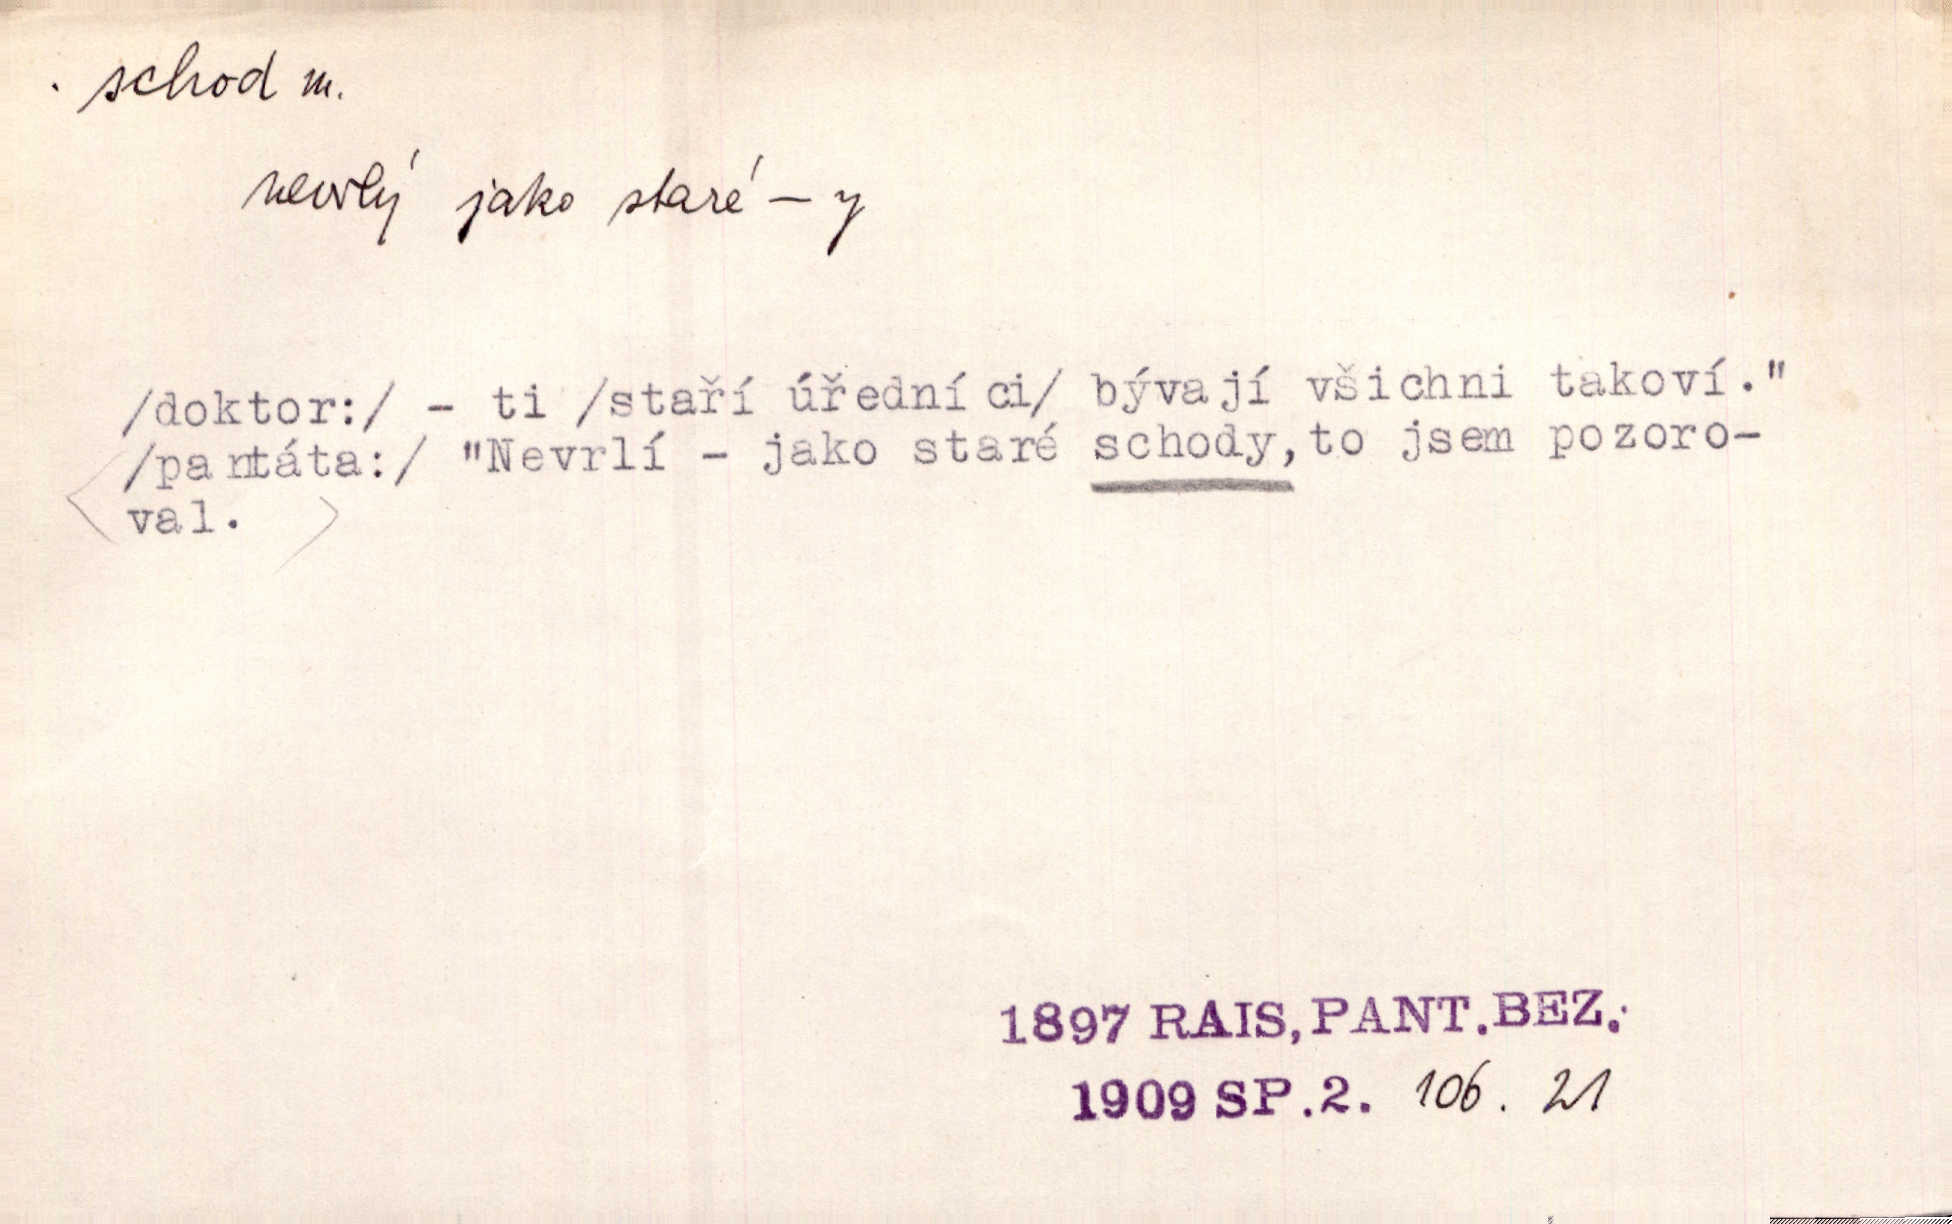 . schod m.
nevrlý jako staré – y
/doktor:/ – ti /staří úředníci/ bývají všichni takoví."
/pantáta:/ "Nevrlí – jako staré schody, to jsem pozoro-
val.
1897 RAIS, PANT. BEZ.
1909 SP. 2. 106. 21